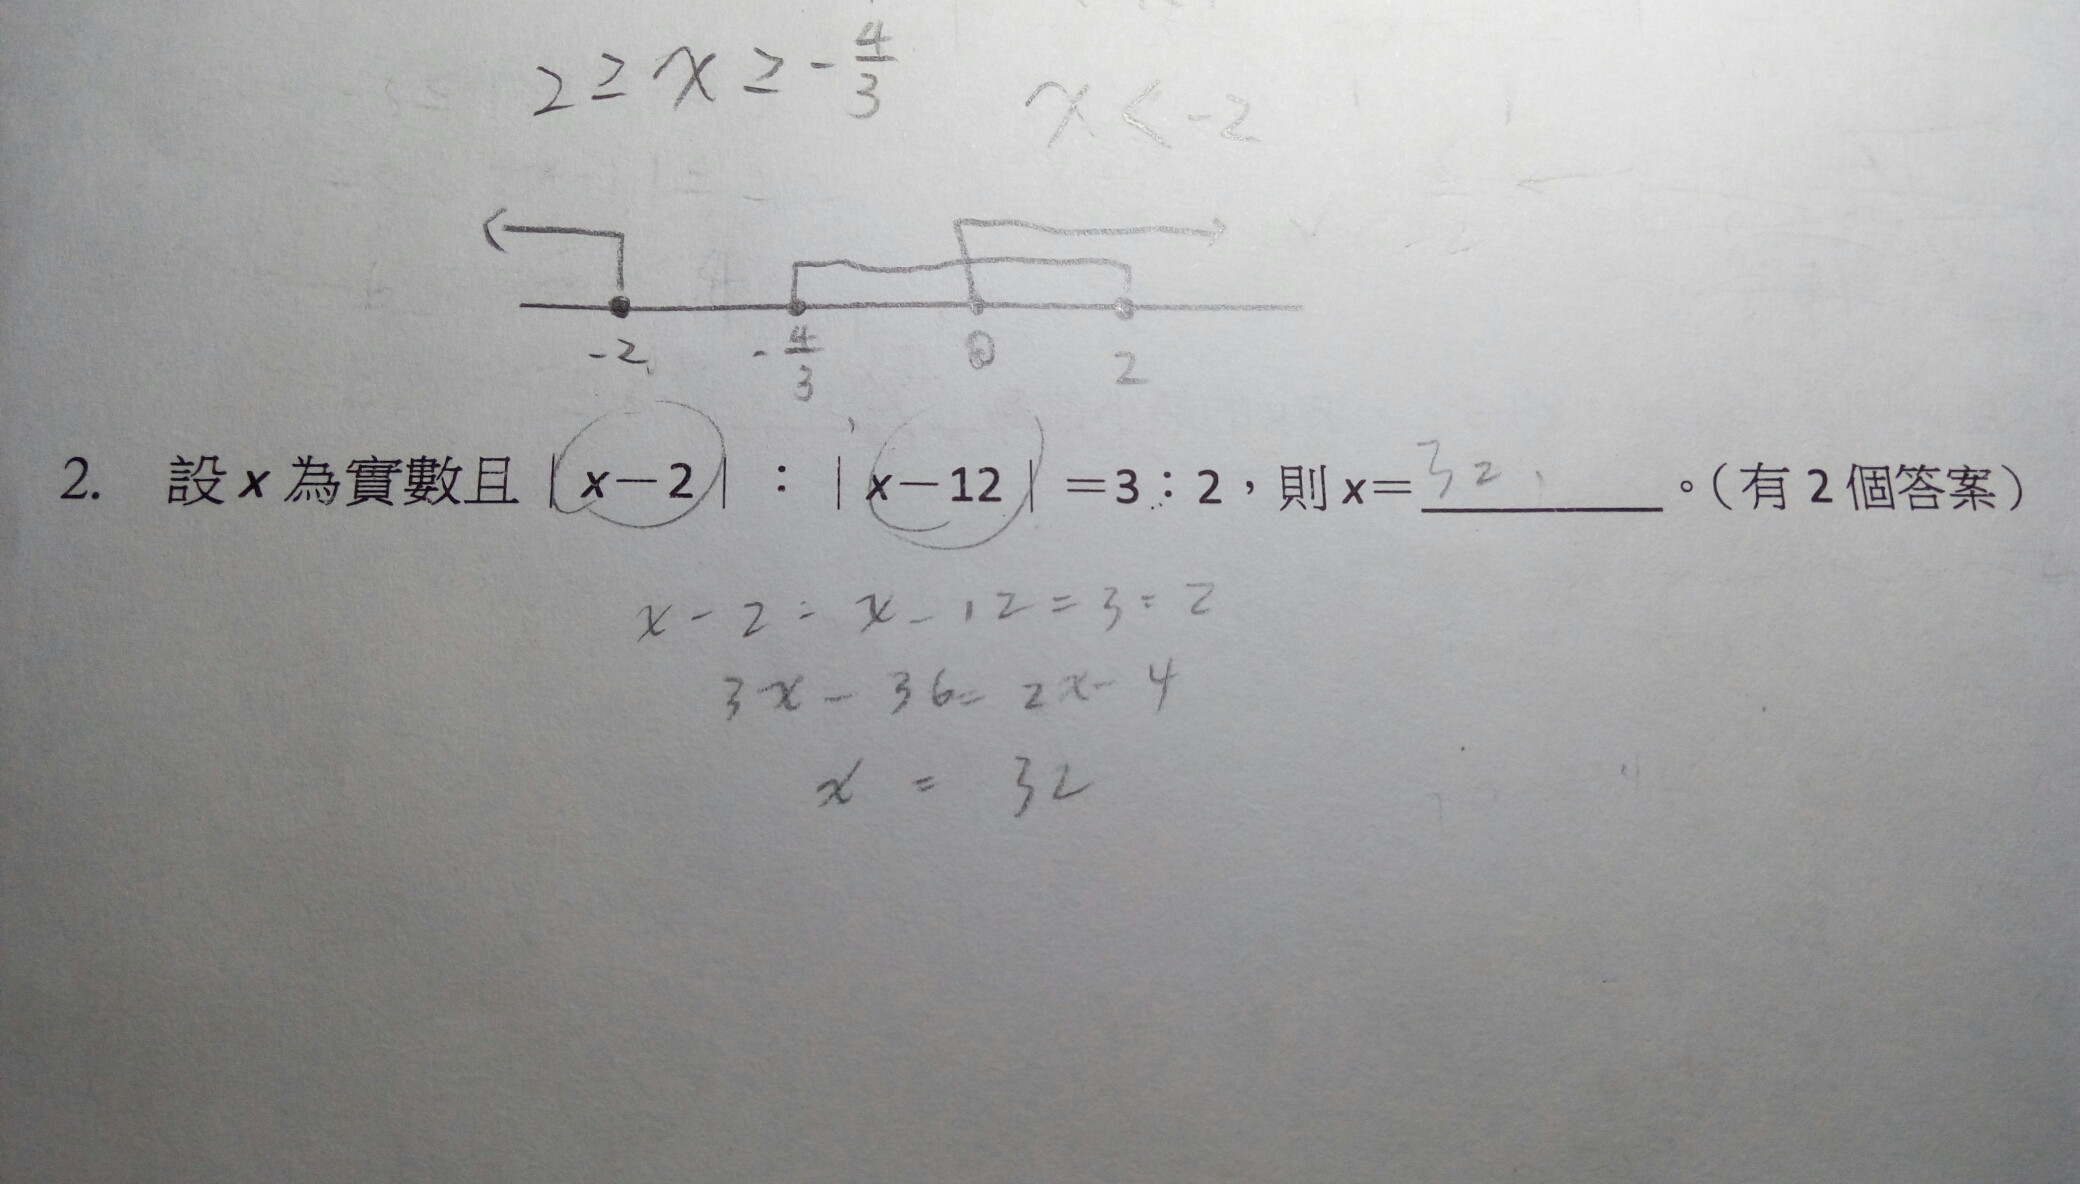 2 ≥ x ≥ -4/3 x < -2
-2 -4/3 0 2
2. 設 x 為實數且 | x－2 | : | x－12 | ＝3：2，則 x＝32, 。（有 2 個答案）
x - 2 : x - 12 = 3 : 2
3x - 36 = 2x - 4
x = 32